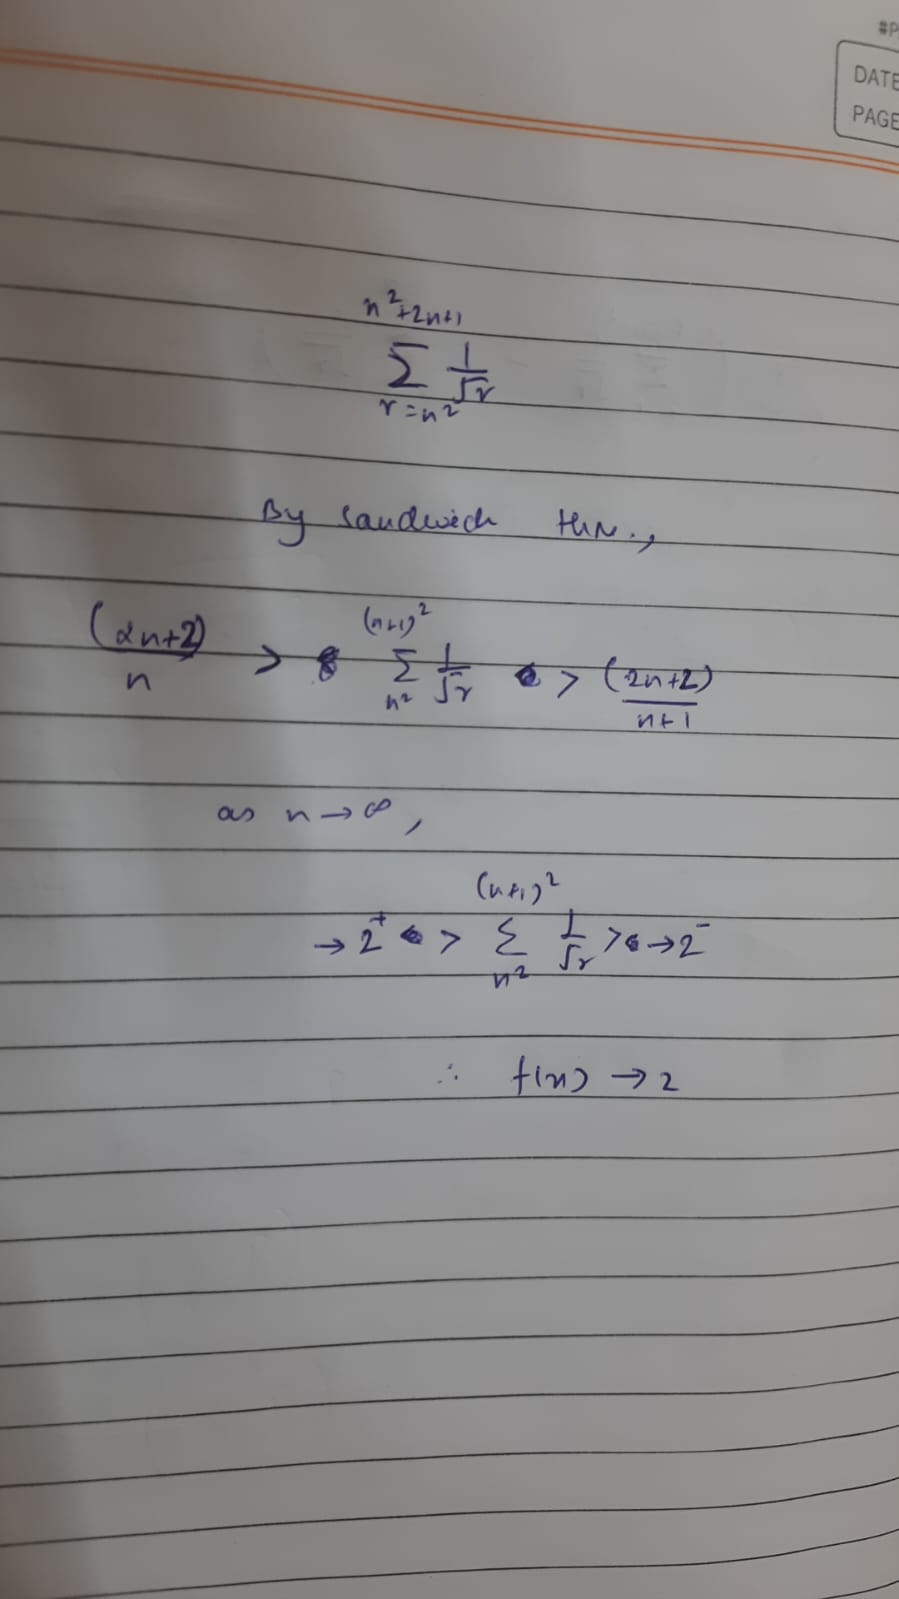 #P
DATE
PAGE
n²+2n+1
Σ 1/√r
r=n²
By sandwich thm.,
(2n+2)/n > (n+1)² Σ n² 1/√r > (2n+2)/n+1
as n→∞,
→2⁺ > (n+1)² Σ n² 1/√r > →2⁻
∴ f(n) → 2